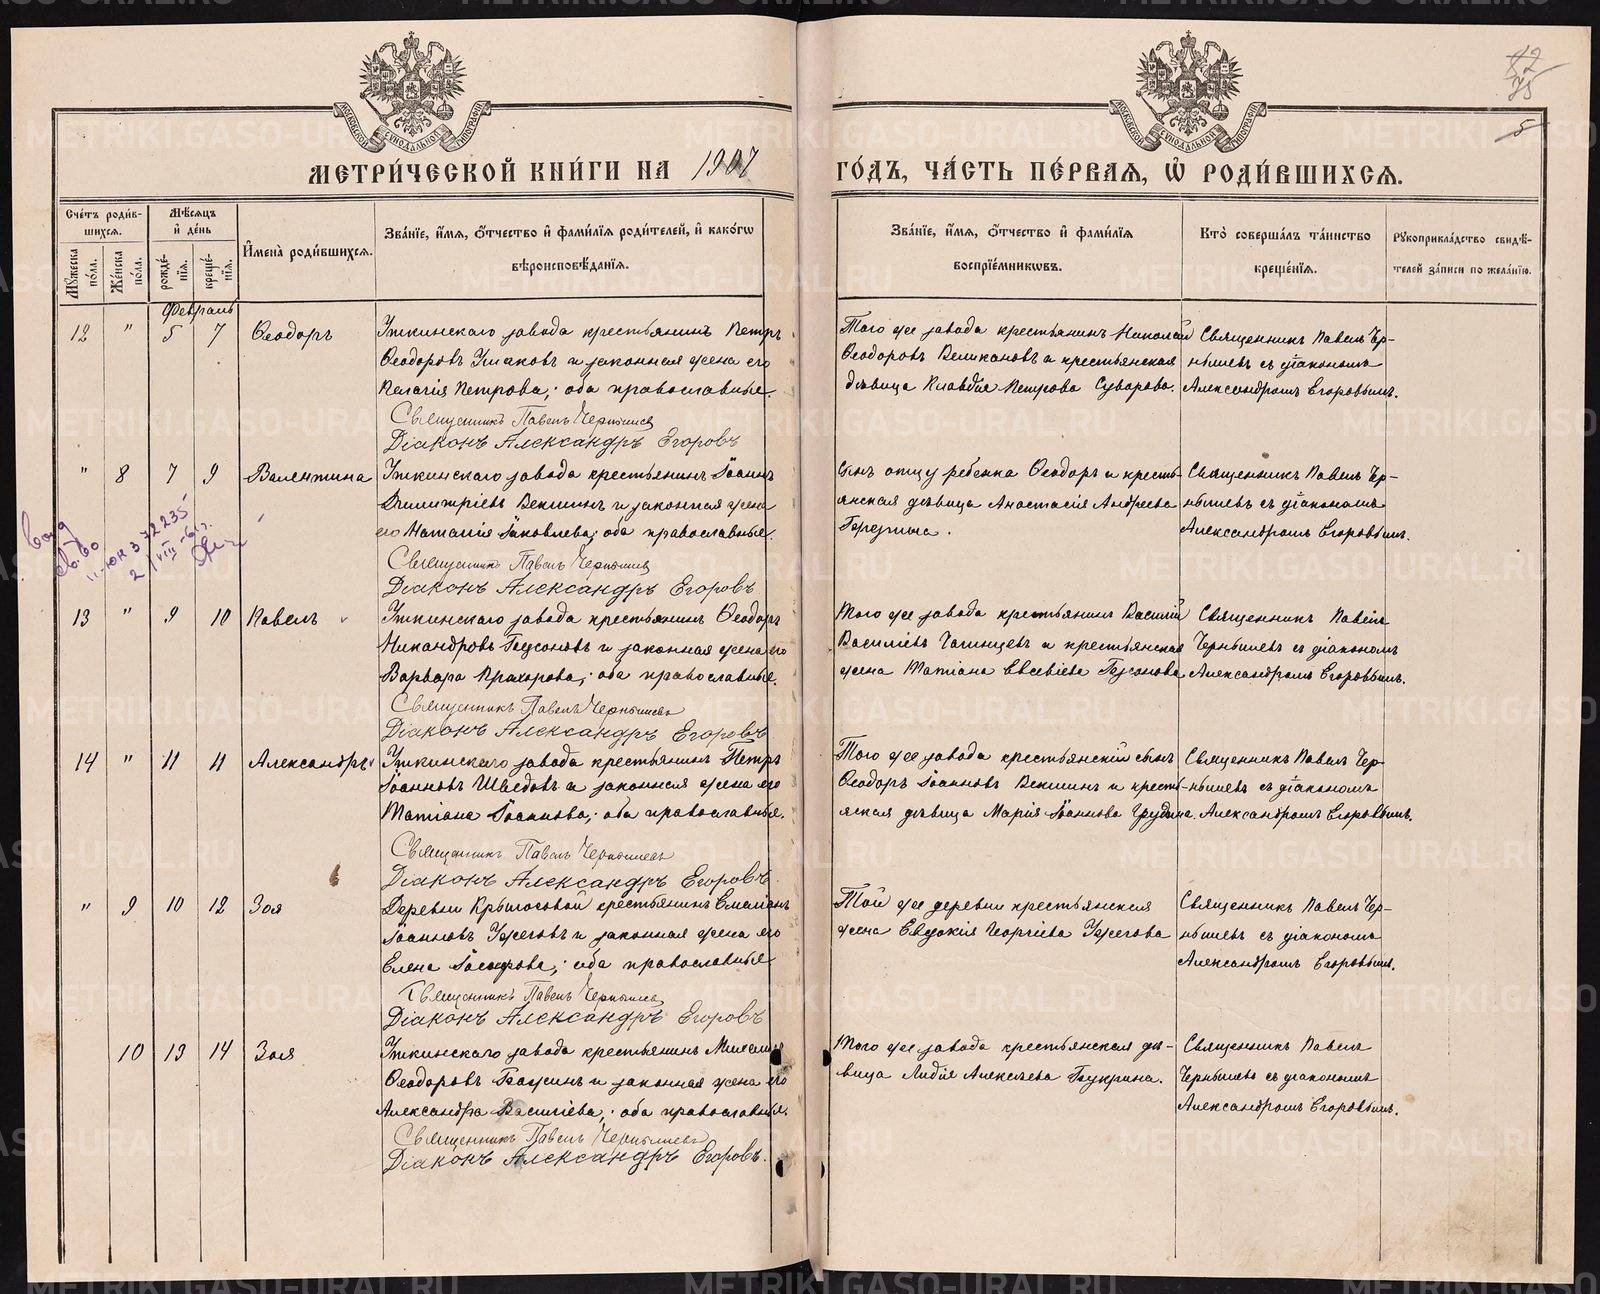 МЕТРИ́ЧЕСКОЙ КНИ́ГИ НА 1907 ГО́ДЪ, ЧА́СТЬ ПЕ́РВАЯ, Ѡ҆ РОДИ́ВШИХСЯ.
5
Сче́тъ роди́в-
шихся.
Мꙋ́жеска по́ла.
Же́нска по́ла.
Мѣ́сяцъ
и҆ де́нь
рожде́-нїя.
креще́-нїя.
И҆мена̀ роди́вшихся.
Зва́нїе, и҆́мя, ѻ҆́тчество и҆ фами́лїя роди́телей, и҆ како́гѡ
вѣроисповѣ́данїя.
Зва́нїе, и҆́мя, ѻ҆́тчество и҆ фами́лїя
воспрїе́мниковъ.
Кто̀ соверша́лъ та́инство
креще́нїя.
Рꙋкоприкла́дство свидѣ́-
телей за́писи по жела́нїю.
Февраль
12 " 5 7 Ѳеодоръ
Уткинскаго завода крестьянинъ Петръ
Ѳеодоровъ Ушаковъ и законная жена его
Пелагія Петрова; оба православные.
Священникъ Павелъ Чернышевъ
Діаконъ Александръ Егоровъ
Того же завода крестьянинъ Николай
Ѳеодоровъ Великановъ и крестьянская
дѣвица Клавдія Петрова Суворова.
Священникъ Павелъ Чер-
нышевъ съ діакономъ
Александромъ Егоровымъ.
" 8 7 9 Валентина
Уткинскаго завода крестьянинъ Іоаннъ
Димитріевъ Векшинъ и законная жена
его Наталія Іаковлева; оба православные.
Священникъ Павелъ Чернышевъ
Діаконъ Александръ Егоровъ
Сынъ отцу ребенка Ѳеодоръ и кресть-
янская дѣвица Анастасія Андреева
Священникъ Павелъ Чер-
нышевъ съ діакономъ
Александромъ Егоровымъ.
св-во
II-ЮК 372235
13 " 9 10 Павелъ
Уткинскаго завода крестьянинъ Ѳеодоръ
Никандровъ и законная жена его
Варвара Прохорова; оба православные.
Священникъ Павелъ Чернышевъ
Діаконъ Александръ Егоровъ
Того же завода крестьянинъ Василій
Василіевъ и крестьянская
жена Татіана Евсевіева
Священникъ Павелъ
Чернышевъ съ діакономъ
Александромъ Егоровымъ.
14 " 11 11 Александръ
Уткинскаго завода крестьянинъ Петръ
Іоанновъ Шведовъ и законная жена его
Татіана Іоаннова; оба православные.
Священникъ Павелъ Чернышевъ
Діаконъ Александръ Егоровъ
Того же завода крестьянскій сынъ
Ѳеодоръ Іоанновъ Векшинъ и кресть-
янская дѣвица Марія Іоаннова
Священникъ Павелъ Чер-
нышевъ съ діакономъ
Александромъ Егоровымъ.
" 9 10 12 Зоя
Деревни Крылосовой крестьянинъ Емиліанъ
Іоанновъ Ужеговъ и законная жена его
Елена оба православные
Священникъ Павелъ Чернышевъ
Діаконъ Александръ Егоровъ
Той же деревни крестьянская
жена Евдокія Георгіева Ужегова
Священникъ Павелъ Чер-
нышевъ съ діакономъ
Александромъ Егоровымъ.
10 13 14 Зоя
Уткинскаго завода крестьянинъ
Ѳеодоровъ и законная жена его
Александра Василіева; оба православные.
Священникъ Павелъ Чернышевъ
Діаконъ Александръ Егоровъ.
Того же завода крестьянская дѣ-
вица Лидія Алексѣева
Священникъ Павелъ
Чернышевъ съ діакономъ
Александромъ Егоровымъ.
METRIKI.GASO-URAL.RU